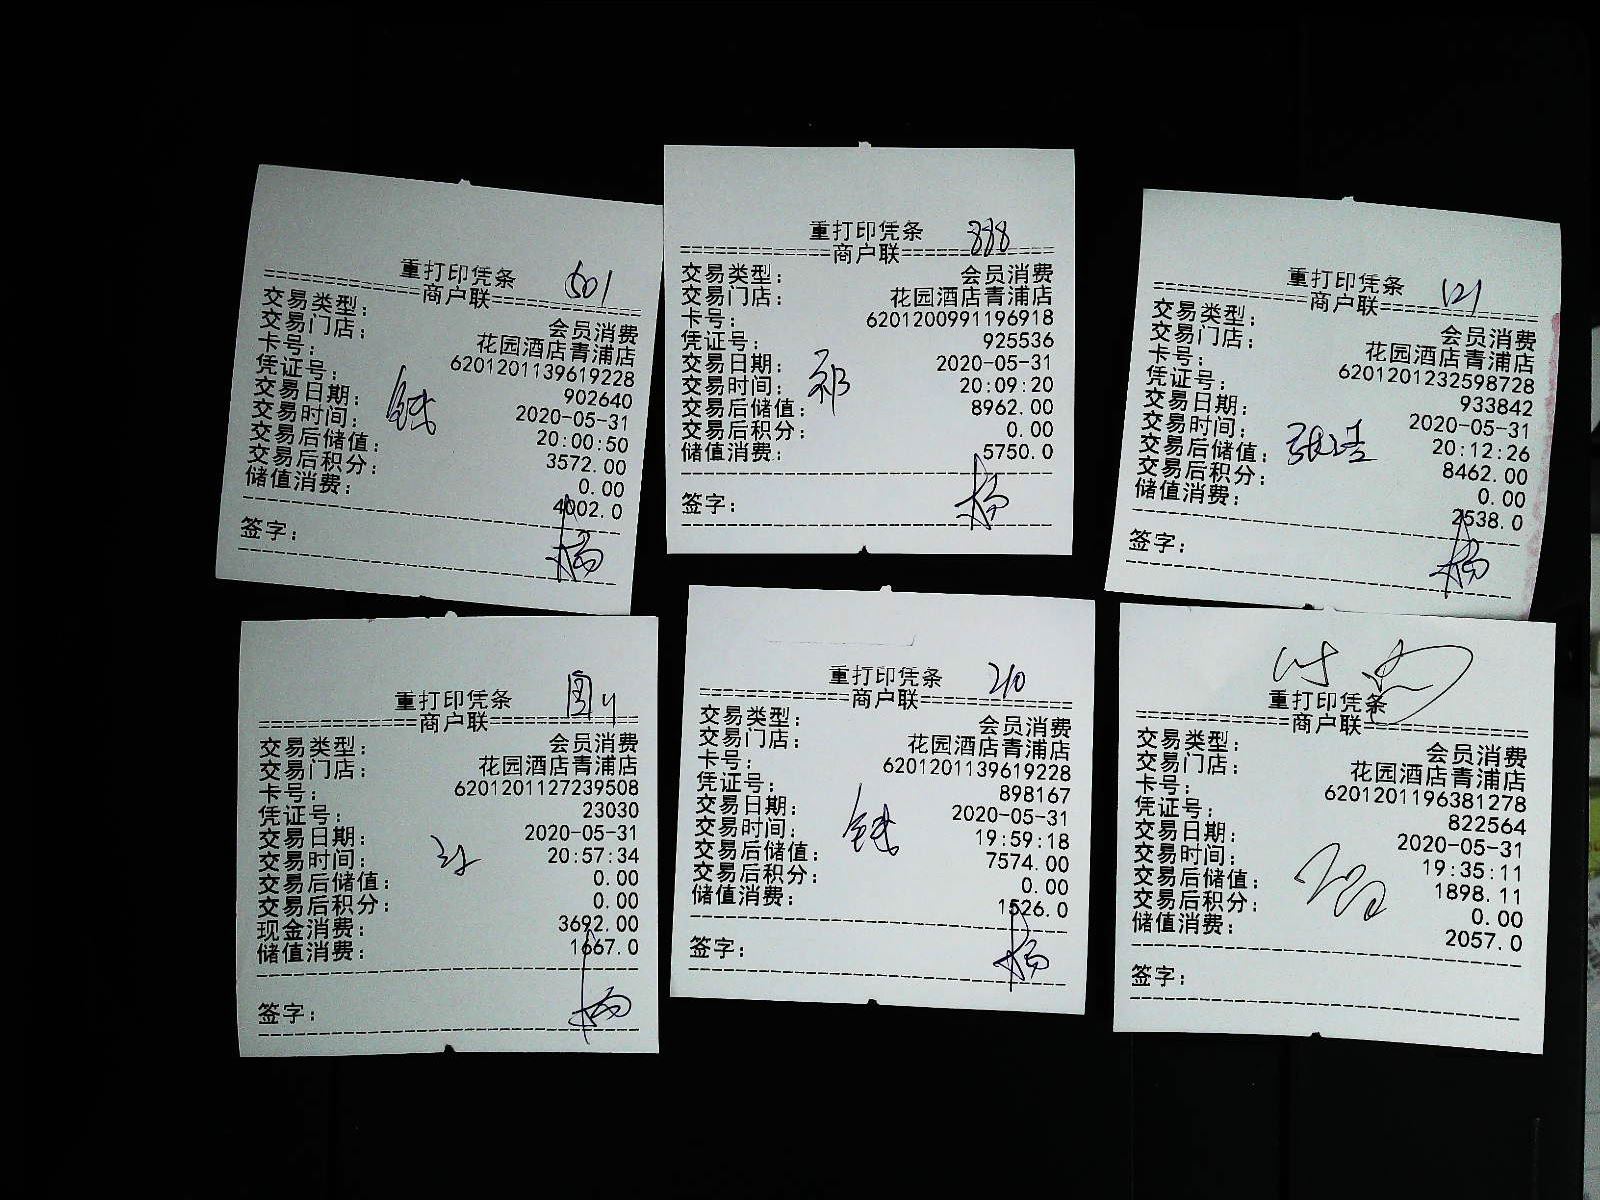 重打印凭条 601
商户联
交易类型： 会员消费
交易门店： 花园酒店青浦店
卡号： 6201201139619228
凭证号： 902640
交易日期： 2020-05-31
交易时间： 20:00:50
交易后储值： 3572.00
交易后积分： 0.00
储值消费： 4002.0
钱
签字： 杨
重打印凭条 888
商户联
交易类型： 会员消费
交易门店： 花园酒店青浦店
卡号： 6201200991196918
凭证号： 925536
交易日期： 2020-05-31
交易时间： 20:09:20
交易后储值： 8962.00
交易后积分： 0.00
储值消费： 5750.0
祁
签字： 杨
重打印凭条 121
商户联
交易类型： 会员消费
交易门店： 花园酒店青浦店
卡号： 6201201232598728
凭证号： 933842
交易日期： 2020-05-31
交易时间： 20:12:26
交易后储值： 8462.00
交易后积分： 0.00
储值消费： 2538.0
签字： 杨
重打印凭条
商户联
交易类型： 会员消费
交易门店： 花园酒店青浦店
卡号： 6201201127239508
凭证号： 23030
交易日期： 2020-05-31
交易时间： 20:57:34
交易后储值： 0.00
交易后积分： 0.00
现金消费： 3692.00
储值消费： 1667.0
签字： 杨
重打印凭条 210
商户联
交易类型： 会员消费
交易门店： 花园酒店青浦店
卡号： 6201201139619228
凭证号： 898167
交易日期： 2020-05-31
交易时间： 19:59:18
交易后储值： 7574.00
交易后积分： 0.00
储值消费： 1526.0
钱
签字： 杨
重打印凭条
商户联
交易类型： 会员消费
交易门店： 花园酒店青浦店
卡号： 6201201196381278
凭证号： 822564
交易日期： 2020-05-31
交易时间： 19:35:11
交易后储值： 1898.11
交易后积分： 0.00
储值消费： 2057.0
签字：